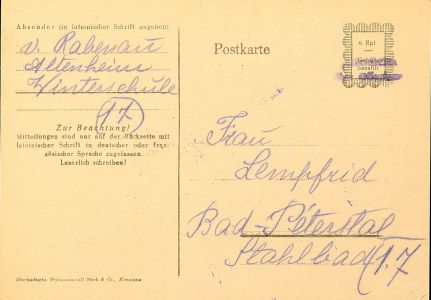 Absender (in lateinischer Schrift angeben)
v. Rabenau
Altenheim
Winterschule
(17)
Zur Beachtung!
Mitteilungen sind nur auf der Rückseite mit
lateinischer Schrift in deutscher oder fran-
zösischer Sprache zugelassen.
Leserlich schreiben!
Oberbadische Verlagsanstalt Merk & Co., Konstanz
Postkarte
6 Rpf
bezahlt
Frau
Lempfrid
Bad-Péterstal
Stahlbad (17)